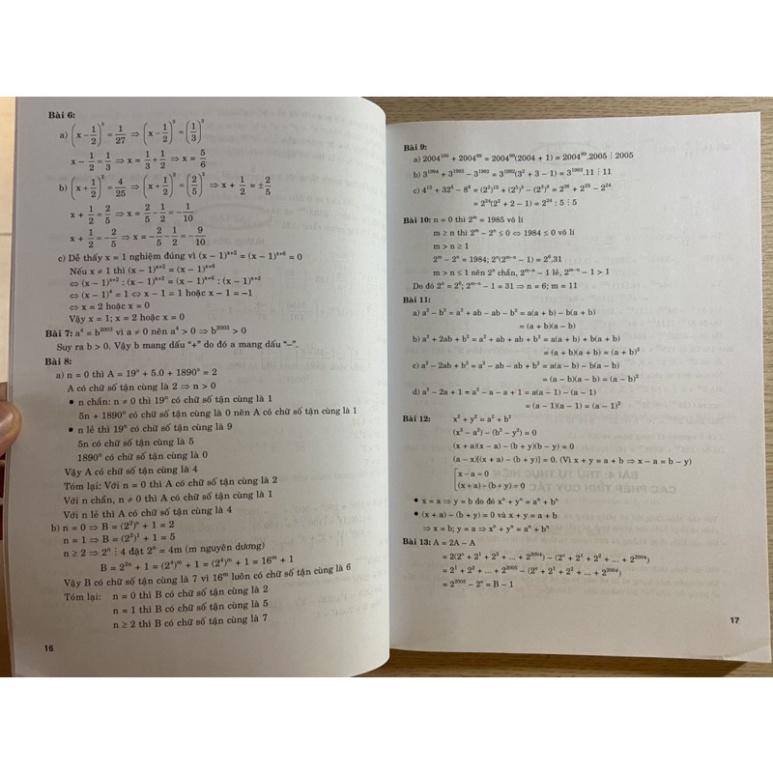 Bài 6:
a) (x − 1/2)³ = 1/27 ⇒ (x − 1/2)³ = (1/3)³
x − 1/2 = 1/3 ⇒ x = 1/3 + 1/2 ⇒ x = 5/6
b) (x + 1/2)² = 4/25 ⇒ (x + 1/2)² = (2/5)² ⇒ x + 1/2 = ± 2/5
x + 1/2 = 2/5 ⇒ x = 2/5 − 1/2 = − 1/10
x + 1/2 = − 2/5 ⇒ x = − 2/5 − 1/2 = − 9/10
c) Dễ thấy x = 1 nghiệm đúng vì (x − 1)ˣ⁺² = (x − 1)ˣ⁺⁶ = 0
Nếu x ≠ 1 thì (x − 1)ˣ⁺² = (x − 1)ˣ⁺⁶
⇔ (x − 1)ˣ⁺² : (x − 1)ˣ⁺² = (x − 1)ˣ⁺⁶ : (x − 1)ˣ⁺²
⇔ (x − 1)⁴ = 1 ⇔ x − 1 = 1 hoặc x − 1 = −1
⇔ x = 2 hoặc x = 0
Vậy x = 1; x = 2 hoặc x = 0
Bài 7: a⁴ = b²⁰⁰³ vì a ≠ 0 nên a⁴ > 0 ⇒ b²⁰⁰³ > 0
Suy ra b > 0. Vậy b mang dấu "+" do đó a mang dấu "−".
Bài 8:
a) n = 0 thì A = 19ⁿ + 5.0 + 1890° = 2
A có chữ số tận cùng là 2 ⇒ n > 0
• n chẵn: n ≠ 0 thì 19ⁿ có chữ số tận cùng là 1
5n + 1890ⁿ có chữ số tận cùng là 0 nên A có chữ số tận cùng là 1
• n lẻ thì 19ⁿ có chữ số tận cùng là 9
5n có chữ số tận cùng là 5
1890ⁿ có chữ số tận cùng là 0
Vậy A có chữ số tận cùng là 4
Tóm lại: Với n = 0 thì A có chữ số tận cùng là 2
Với n chẵn, n ≠ 0 thì A có chữ số tận cùng là 1
Với n lẻ thì A có chữ số tận cùng là 4
b) n = 0 ⇒ B = (2²)ⁿ + 1 = 2
n = 1 ⇒ B = (2²)¹ + 1 = 5
n ≥ 2 ⇒ 2ⁿ ⋮ 4 đặt 2ⁿ = 4m (m nguyên dương)
B = 2²ⁿ + 1 = (2⁴)ᵐ + 1 = (2⁴)ᵐ + 1 = 16ᵐ + 1
Vậy B có chữ số tận cùng là 7 vì 16ᵐ luôn có chữ số tận cùng là 6
Tóm lại: n = 0 thì B có chữ số tận cùng là 2
n = 1 thì B có chữ số tận cùng là 5
n ≥ 2 thì B có chữ số tận cùng là 7
16
Bài 9:
a) 2004¹⁰⁰ + 2004⁹⁹ = 2004⁹⁹(2004 + 1) = 2004⁹⁹.2005 ⋮ 2005
b) 3¹⁹⁹⁴ + 3¹⁹⁹³ − 3¹⁹⁹² = 3¹⁹⁹²(3² + 3 − 1) = 3¹⁹⁹².11 ⋮ 11
c) 4¹³ + 32⁵ − 8⁸ = (2²)¹³ + (2⁵)⁵ − (2³)⁸ = 2²⁶ + 2²⁵ − 2²⁴
= 2²⁴(2² + 2 − 1) = 2²⁴ : 5 ⋮ 5
Bài 10: n = 0 thì 2ᵐ = 1985 vô lí
m ≥ n thì 2ᵐ − 2ⁿ ≤ 0 ⇔ 1984 ≤ 0 vô lí
m > n ≥ 1
2ᵐ − 2ⁿ = 1984; 2ⁿ(2ᵐ⁻ⁿ − 1) = 2⁶.31
m > n ≤ 1 nên 2ⁿ chẵn, 2ᵐ⁻ⁿ − 1 lẻ, 2ᵐ⁻ⁿ − 1 > 1
Do đó 2ⁿ = 2⁶; 2ᵐ⁻ⁿ − 1 = 31 ⇒ n = 6; m = 11
Bài 11:
a) a² − b² = a² + ab − ab − b² = a(a + b) − b(a + b)
= (a + b)(a − b)
b) a² + 2ab + b² = a² + ab + ab + b² = a(a + b) + b(a + b)
= (a + b)(a + b) = (a + b)²
c) a² − 2ab + b² = a² − ab − ab + b² = a(a − b) − b(a − b)
= (a − b)(a − b) = (a − b)²
d) a² − 2a + 1 = a² − a − a + 1 = a(a − 1) − (a − 1)
= (a − 1)(a − 1) = (a − 1)²
Bài 12: x² + y² = a² + b²
(x² − a²) − (b² − y²) = 0
(x + a)(x − a) − (b + y)(b − y) = 0
(a − x)[(x + a) − (b + y)] = 0. (Vì x + y = a + b ⇒ x − a = b − y)
[x − a = 0
(x + a) − (b + y) = 0
• x = a ⇒ y = b do đó xⁿ + yⁿ = aⁿ + bⁿ
• (x + a) − (b + y) = 0 và x + y = a + b
⇒ x = b; y = a ⇒ xⁿ + yⁿ = aⁿ + bⁿ
Bài 13: A = 2A − A
= 2(2° + 2¹ + 2² + ... + 2²⁰⁰⁴) − (2° + 2¹ + 2² + ... + 2²⁰⁰⁴)
= 2¹ + 2² + ... + 2²⁰⁰⁵ − (2° + 2¹ + 2² + ... + 2²⁰⁰⁴)
= 2²⁰⁰⁵ − 2° = B − 1
17